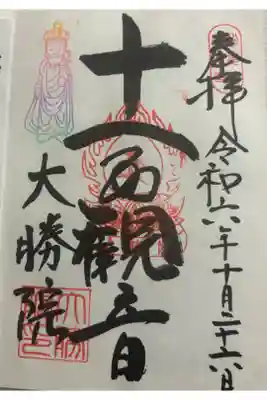 奉拝 令和六年十月二十六日
十一面観音
大勝院